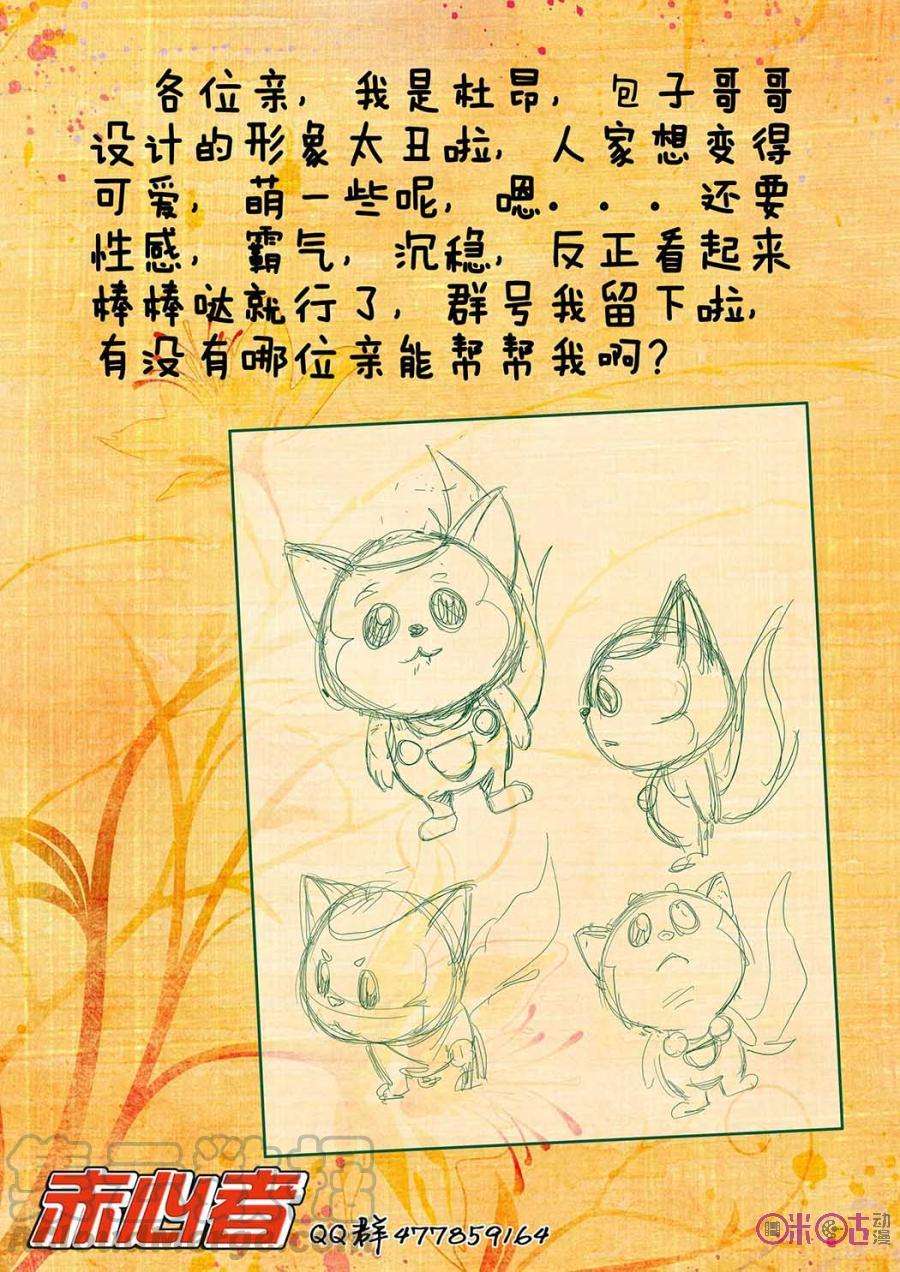 各位亲，我是杜昂，包子哥哥
设计的形象太丑啦，人家想变得
可爱，萌一些呢，嗯...还要
性感，霸气，沉稳，反正看起来
棒棒哒就行了，群号我留下啦，
有没有哪位亲能帮帮我啊？
赤心者
QQ群477859164
咪咕动漫